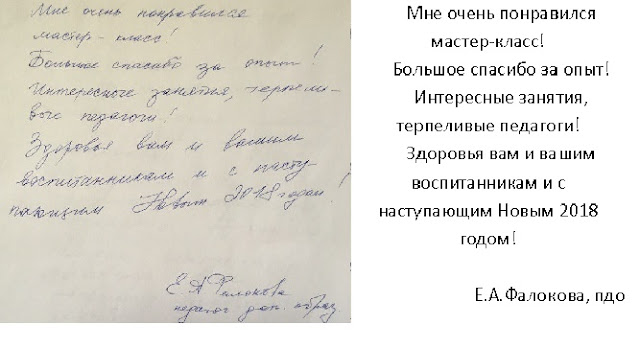 Мне очень понравился
мастер-класс!
Большое спасибо за опыт!
Интересные занятия, терпели-
вые педагоги!
Здоровья вам и вашим
воспитанникам и с насту-
пающим Новым 2018 годом!
Е.А Фалокова
педагог доп. образ.
Мне очень понравился
мастер-класс!
Большое спасибо за опыт!
Интересные занятия,
терпеливые педагоги!
Здоровья вам и вашим
воспитанникам и с
наступающим Новым 2018
годом!
Е.А.Фалокова, пдо